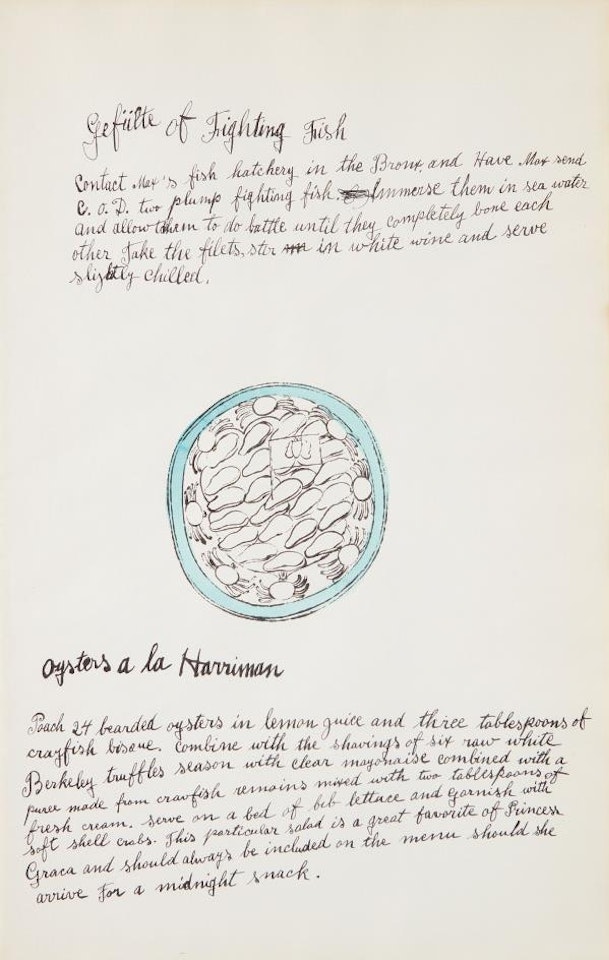 Gefülte of Fighting Fish
Contact Max's fish hatchery in the Bronx, and Have Max send
C. O. D. two plump fighting fish. Immerse them in sea water
and allow them to do battle until they completely bone each
other Take the filets, stir in white wine and serve
slightly chilled.
oysters a la Harriman
Poach 24 bearded oysters in lemon juice and three tablespoons of
crayfish bisque. Combine with the shavings of six raw white
Berkeley truffles season with clear mayonaise combined with a
puree made from crayfish remains mixed with two tablespoons of
fresh cream. serve on a bed of bib lettace and garnish with
soft shell crabs. This particular salad is a great favorite of Princess
Graca and should always be included on the menu should she
arrive For a midnight snack.